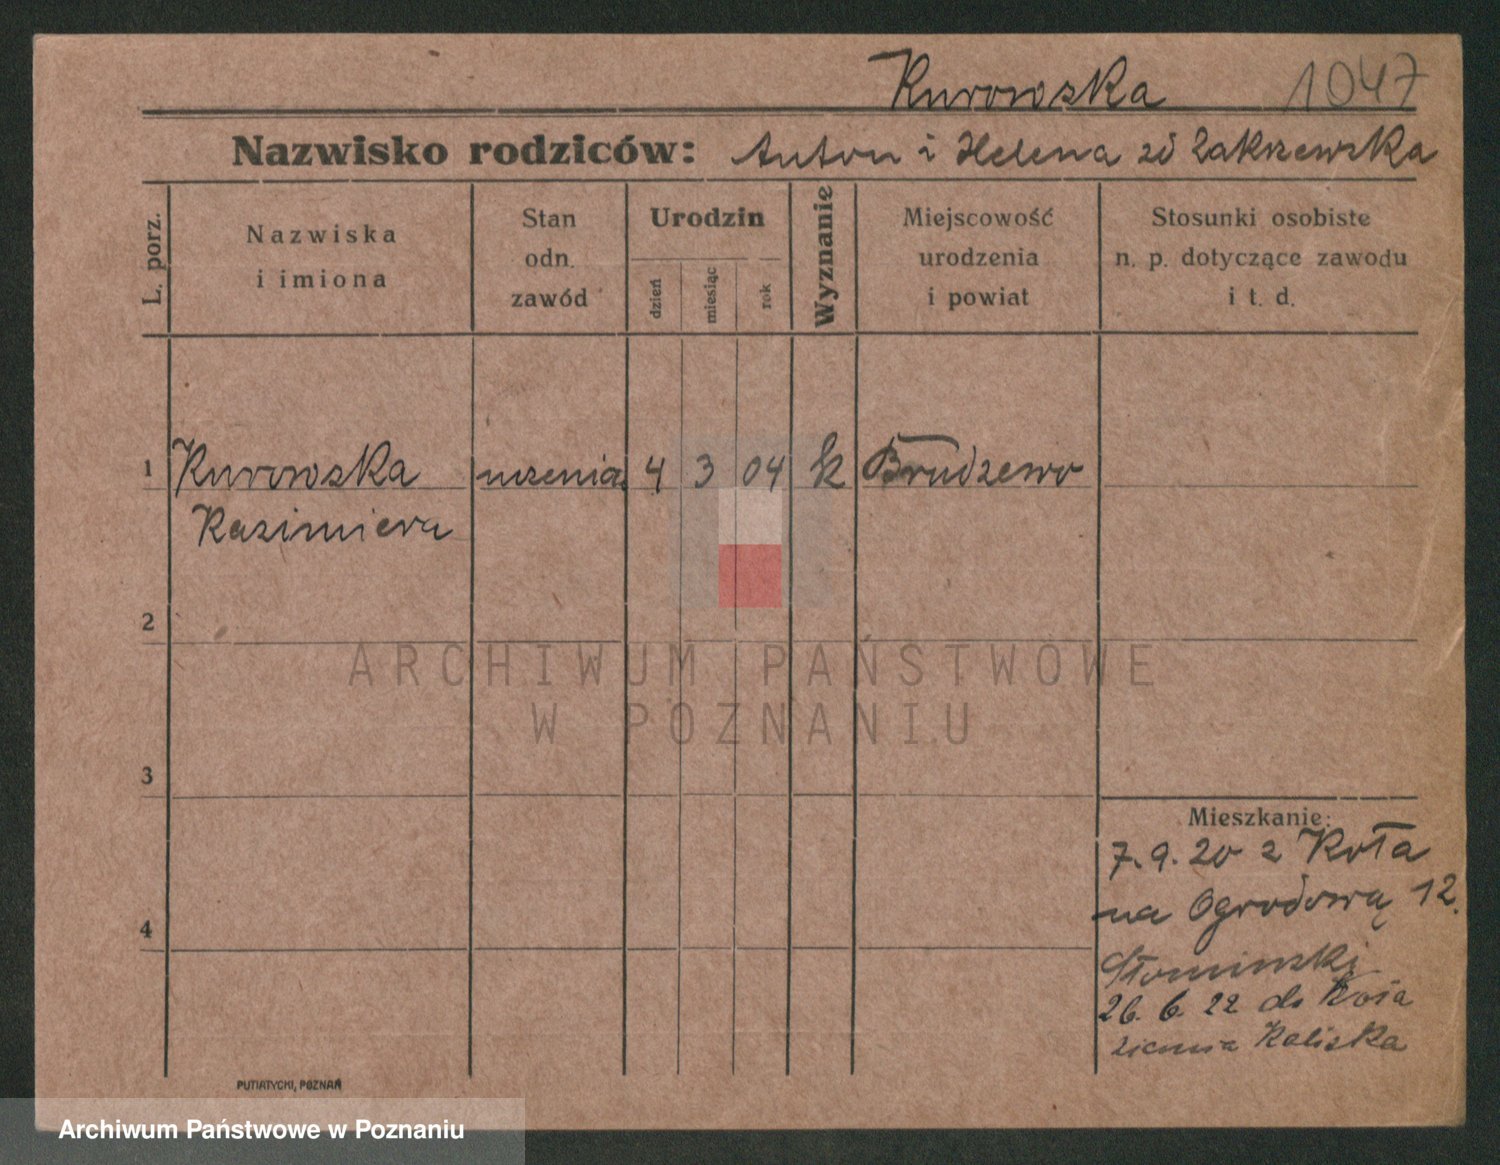 Kurowska 1047
Nazwisko rodziców: Anton i Helena zd Zakrzewska
L. porz.
Nazwiska
i imiona
Stan
odn.
zawód
Urodzin
dzień
miesiąc
rok
Wyznanie
Miejscowość
urodzenia
i powiat
Stosunki osobiste
n. p. dotyczące zawodu
i t. d.
1 Kurowska uczenica 4 3 04 k Brudzewo
Kazimiera
2
3
4
ARCHIWUM PAŃSTWOWE
W POZNANIU
Mieszkanie:
7.9.20 z Koła
na Ogrodową 12.
Słominski
26.6.22 do Koła
ziemia Kaliska
PUTIATYCKI, POZNAŃ
Archiwum Państwowe w Poznaniu